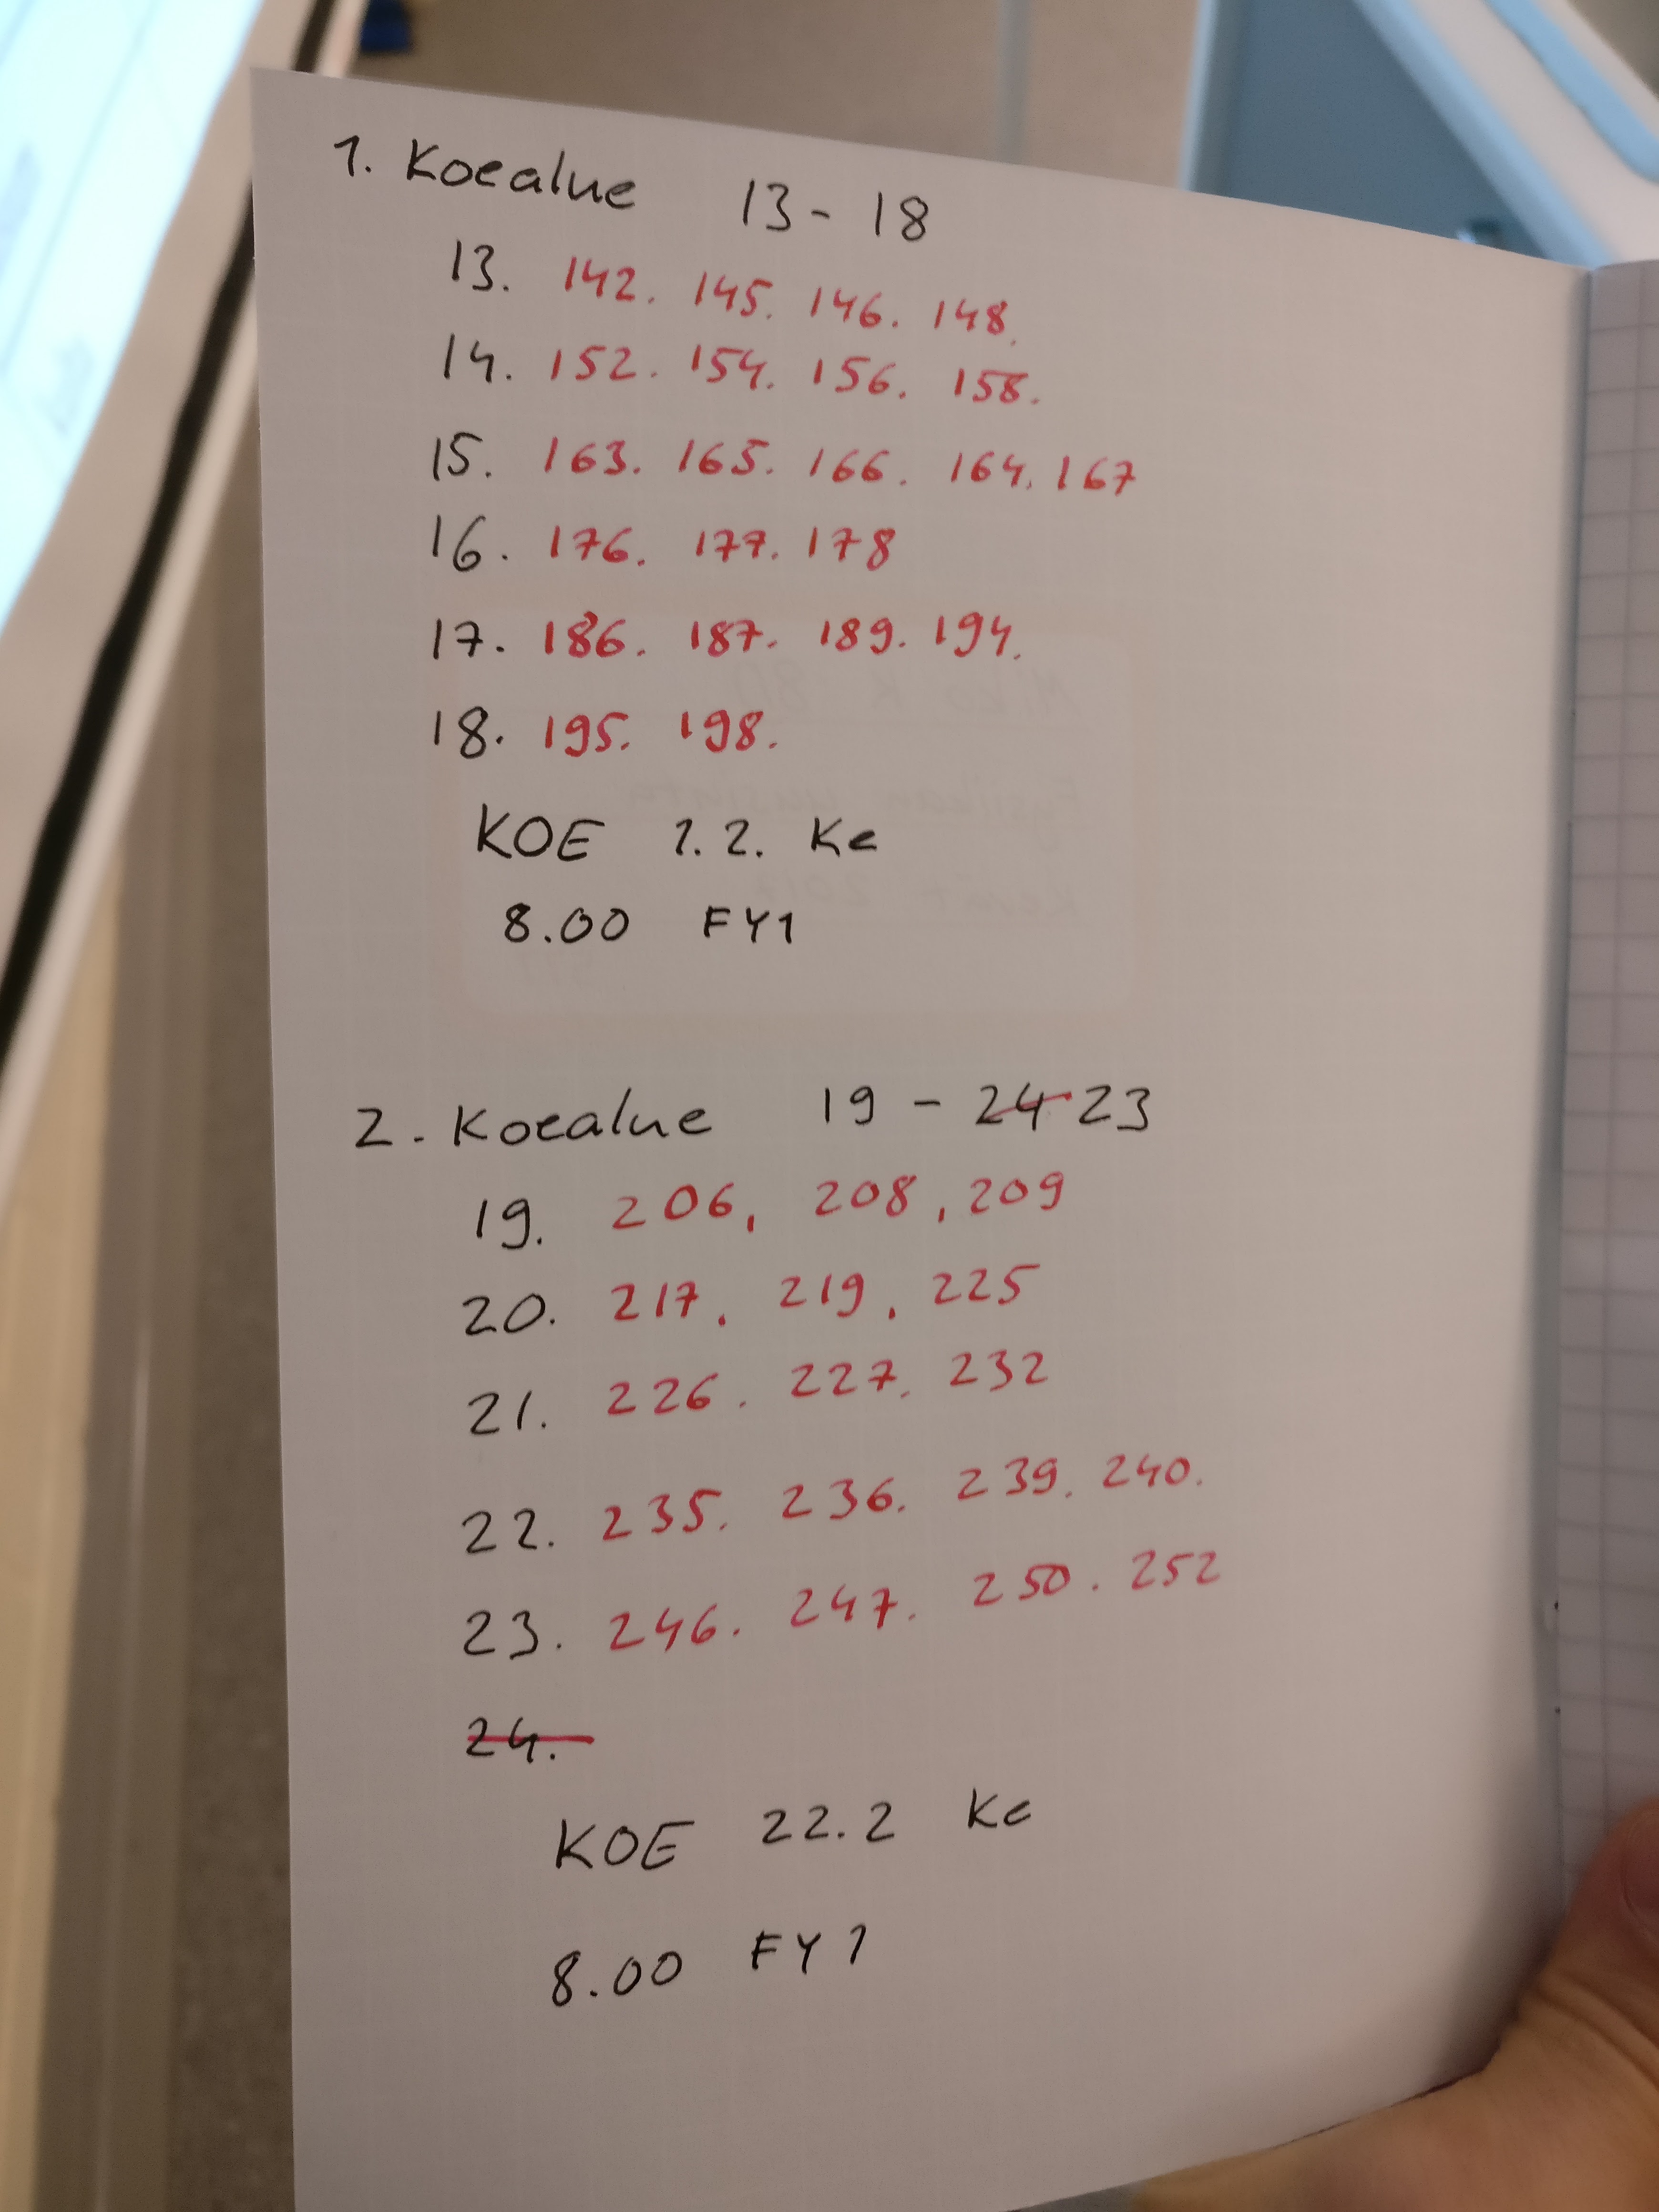 1. Koealue 13 - 18
13. 142. 145. 146. 148.
14. 152. 154. 156. 158.
15. 163. 165. 166. 164. 167
16. 176. 177. 178
17. 186. 187. 189. 194.
18. 195. 198.
KOE 1.2. Ke
8.00 FY1
2. Koealue 19 - 24 23
19. 206, 208, 209
20. 217, 219, 225
21. 226. 227. 232
22. 235. 236. 239. 240.
23. 246. 247. 250. 252
24.
KOE 22.2 Ke
8.00 FY1